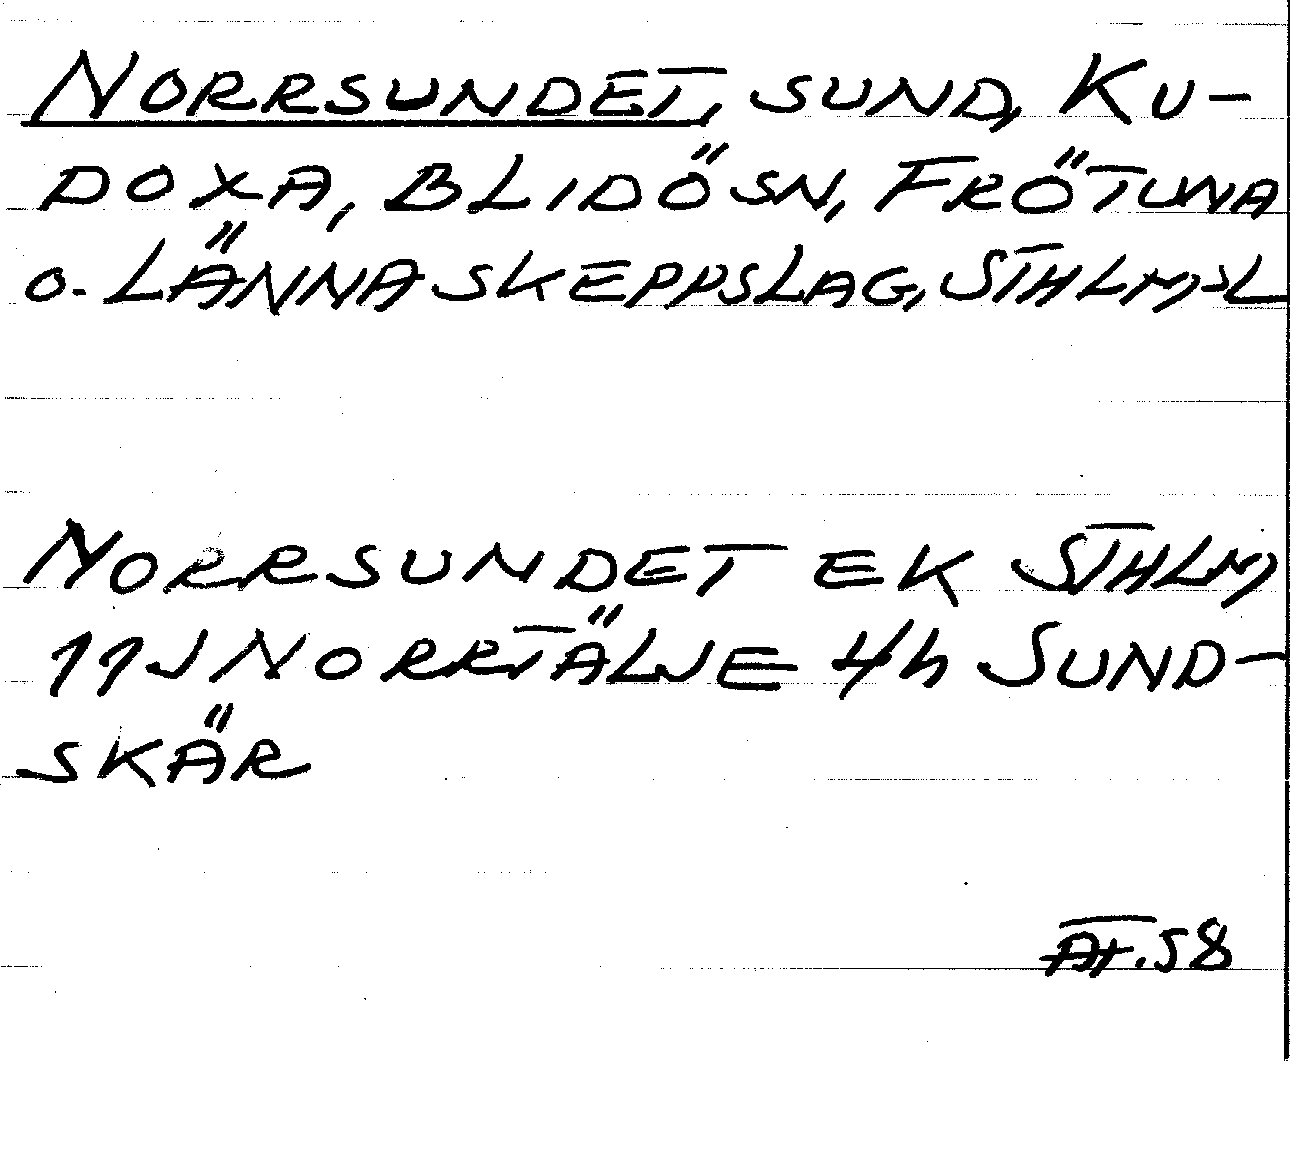 NORRSUNDET, SUND, KU-
DOXA, BLIDÖSN, FRÖTUNA
o. LÄNNA SKEPPSLAG, STHLMSL
NORRSUNDET EK STHLM
11J NORRTÄLJE 4h SUND-
SKÄR
AT.58